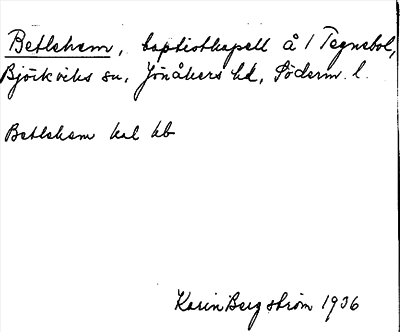 Betlehem, baptistkapell å 1 Tegnebol,
Björkviks sn, Jönåkers hd, Söderm. l.
Betlehem kal kb
Karin Bergström 1936